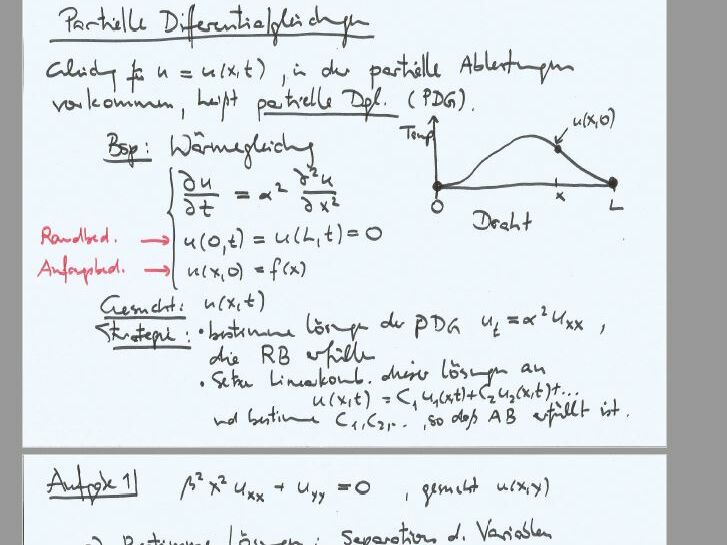 Partielle Differentialgleichungen
Gleichg für u = u(x,t), in der partielle Ableitungen
vorkommen, heißt partielle Dgl. (PDG).
Bsp: Wärmegleichg
∂u/∂t = α² ∂²u/∂x²
Randbed. → u(0,t) = u(L,t) = 0
Anfangsbed. → u(x,0) = f(x)
Temp
u(x,0)
0
x
L
Draht
Gesucht: u(x,t)
Strategie: • bestimme Lösungen der PDG u_t = α² u_xx,
die RB erfüllen
• Setze Linearkomb. dieser Lösungen an
u(x,t) = C₁u₁(x,t)+C₂u₂(x,t)+...
und bestimme C₁,C₂,.., so daß AB erfüllt ist.
Aufgabe 1) β²x²u_xx + u_yy = 0, gesucht u(x,y)
a) Bestimme Lösungen: Separation d. Variablen